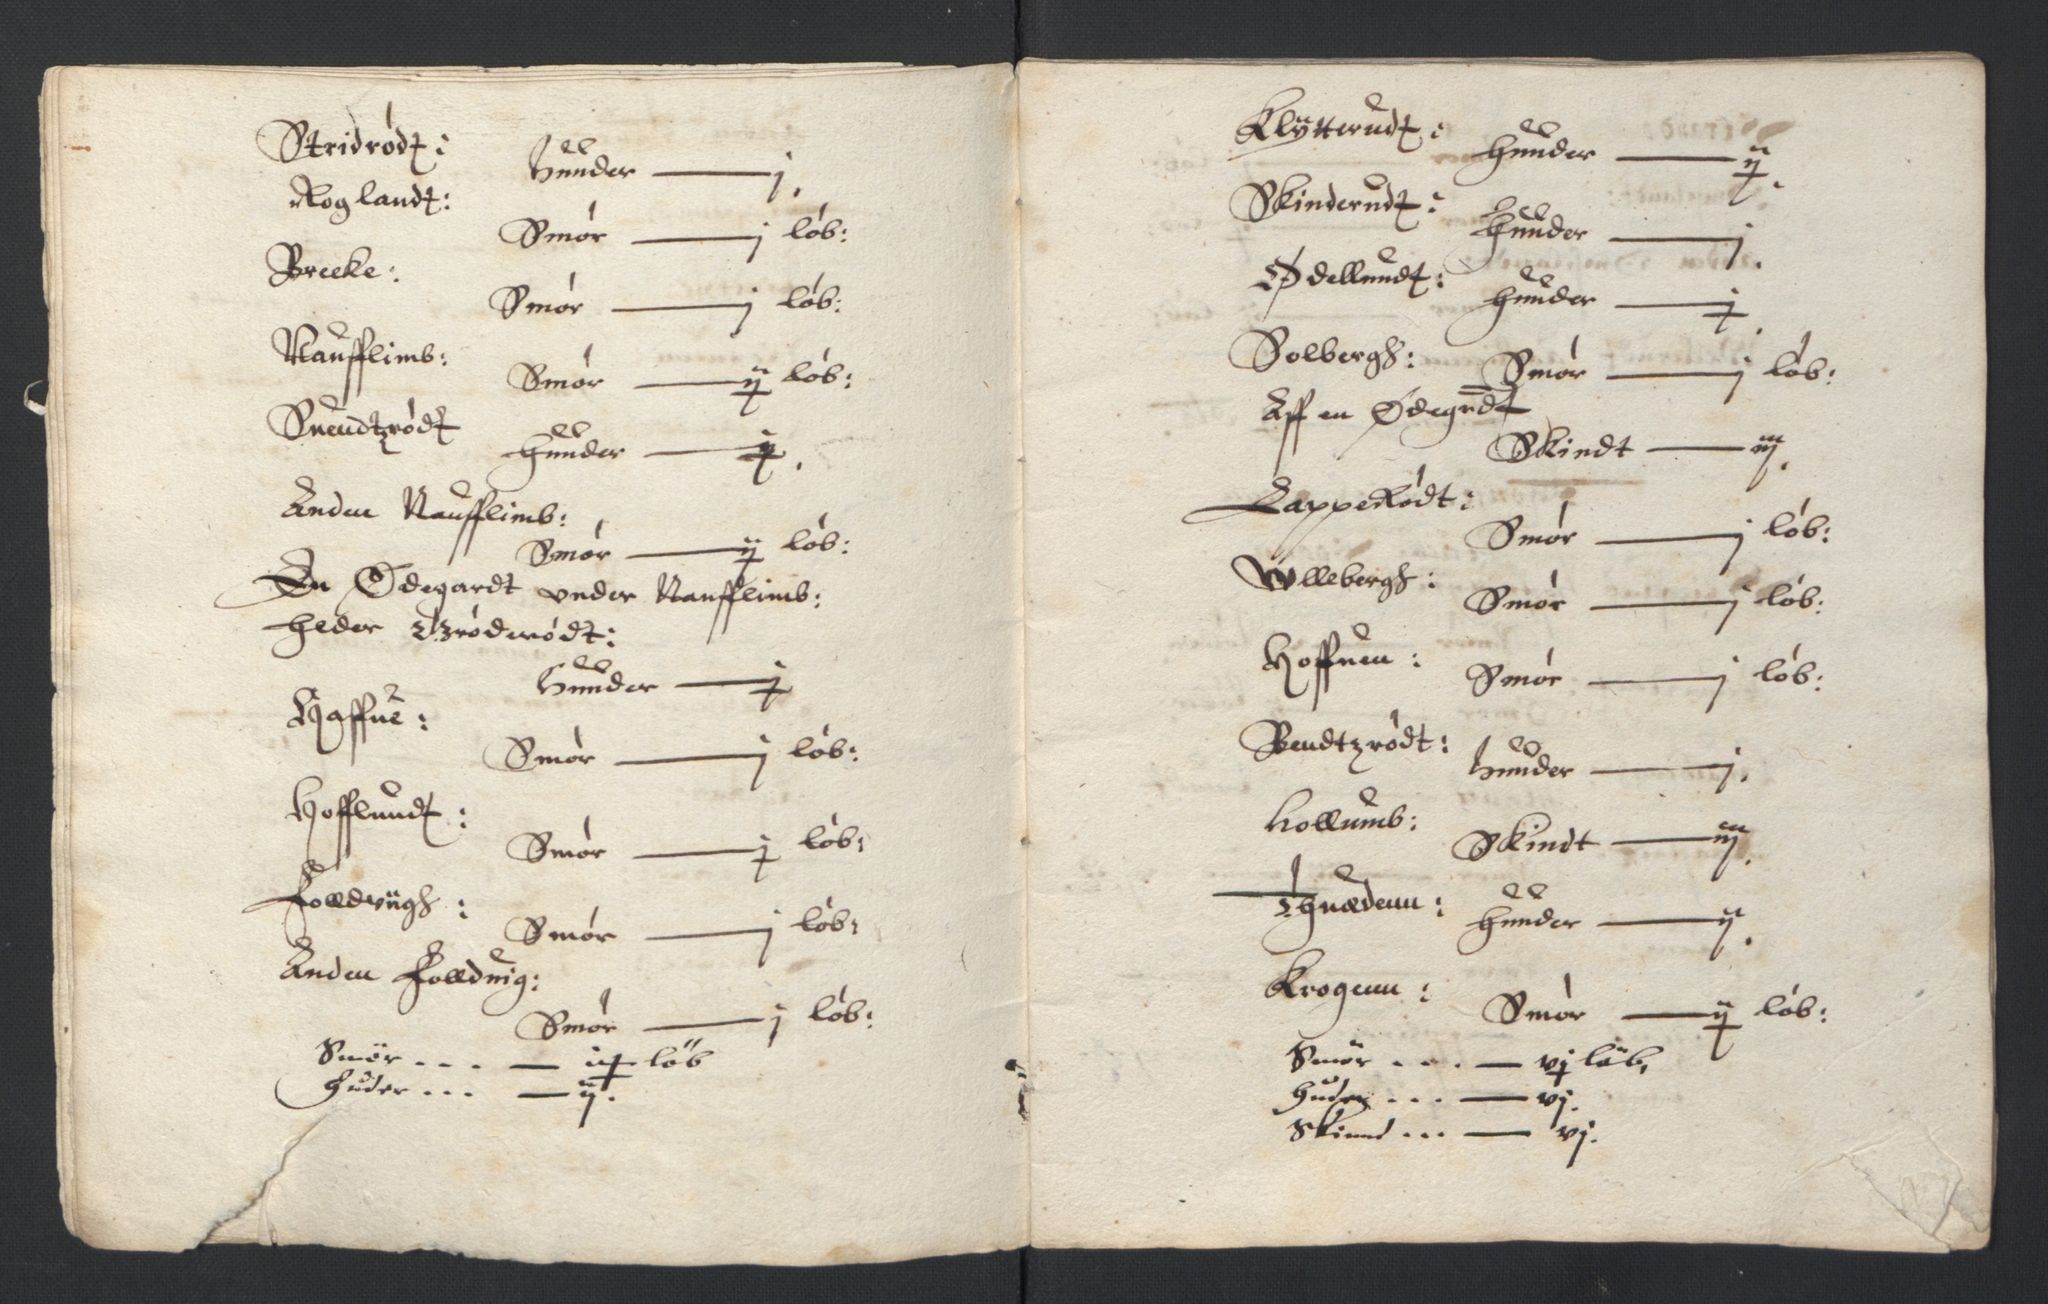 Stridrødt:
Huuder — j.
Roglandt:
Smør — j løb:
Breeke:
Smør — j løb:
Naufflimb:
Smør — ij løb:
Suendtzrødt
Huuder — j.
Anden Naufflimb:
Smør — ij løb:
En Ødegardt vnder Naufflimb:
heder Tzrøderødt:
Huuder — j
Haffue:
Smør — j løb:
Hofflundt:
Smør — j løb:
Folldviigh:
Smør — j løb:
Anden Follduig:
Smør — j løb:
Smör . . . — löb
huder . . . — ij.
Klÿtterudt:
Huuder — ij.
Skinderudt:
Huuder — j.
Ødellundt:
Huuder — j
Solbergh:
Smør — j løb:
Aff en Ødegrdt
Skindt — iij.
LappeRødt:
Smør — j løb:
Wllebergh:
Smør — j løb:
Hoffuen:
Smør — j løb:
Bendtzrødt:
Huuder — j.
Hollumb:
Skindt — iij.
Thuedenn:
Huuder — ij.
Krogenn:
Smør — ij løb:
Smör . . . — vj löb,
huder . . . — vj.
Skinnd . . . — vj.